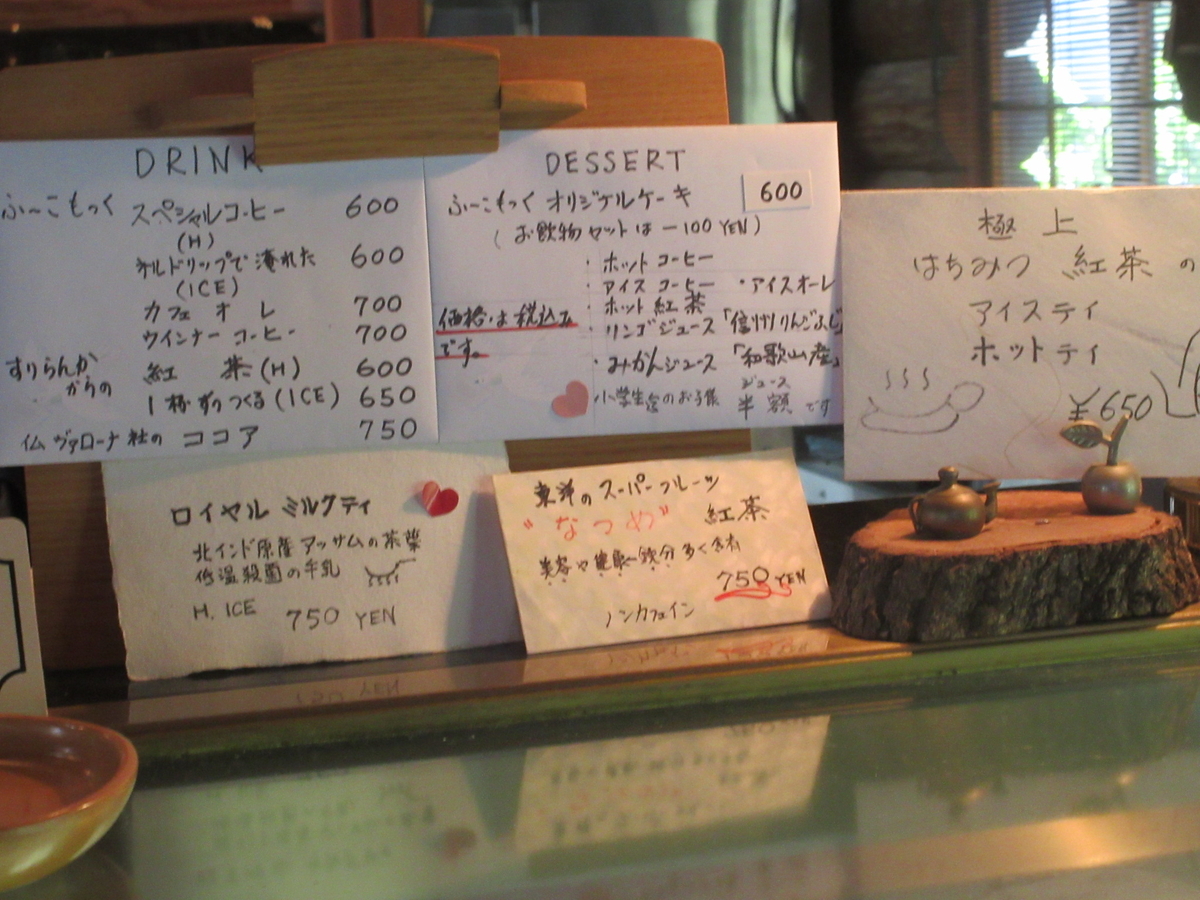 DRINK
ふ〜こもっく スペシャルコーヒー 600
(H)
ネルドリップで淹れた 600
(ICE)
カフェ オ レ 700
ウインナー コーヒー 700
すりらんか
からの
紅 茶 (H) 600
1杯ずつつくる (ICE) 650
仏 ヴァローナ社の ココア 750
DESSERT
ふ〜こもっく オリジナルケーキ 600
(お飲物セットは －100 YEN)
・ホット コーヒー
・アイス コーヒー ・アイスオーレ
・ホット 紅 茶
・リンゴジュース 「信州りんごふじ
・みかんジュース 「和歌山産」
価格は税込み
です。
小学生迄のお子様 ジュース 半額 です
極上
はちみつ 紅茶 の
アイスティ
ホットティ
¥650
ロイヤル ミルクティ
北インド原産 アッサムの茶葉
低温殺菌の牛乳
H. ICE 750 YEN
東洋のスーパーフルーツ
"なつめ" 紅茶
美容や健康 鉄分 多く含有
750 YEN
ノンカフェイン